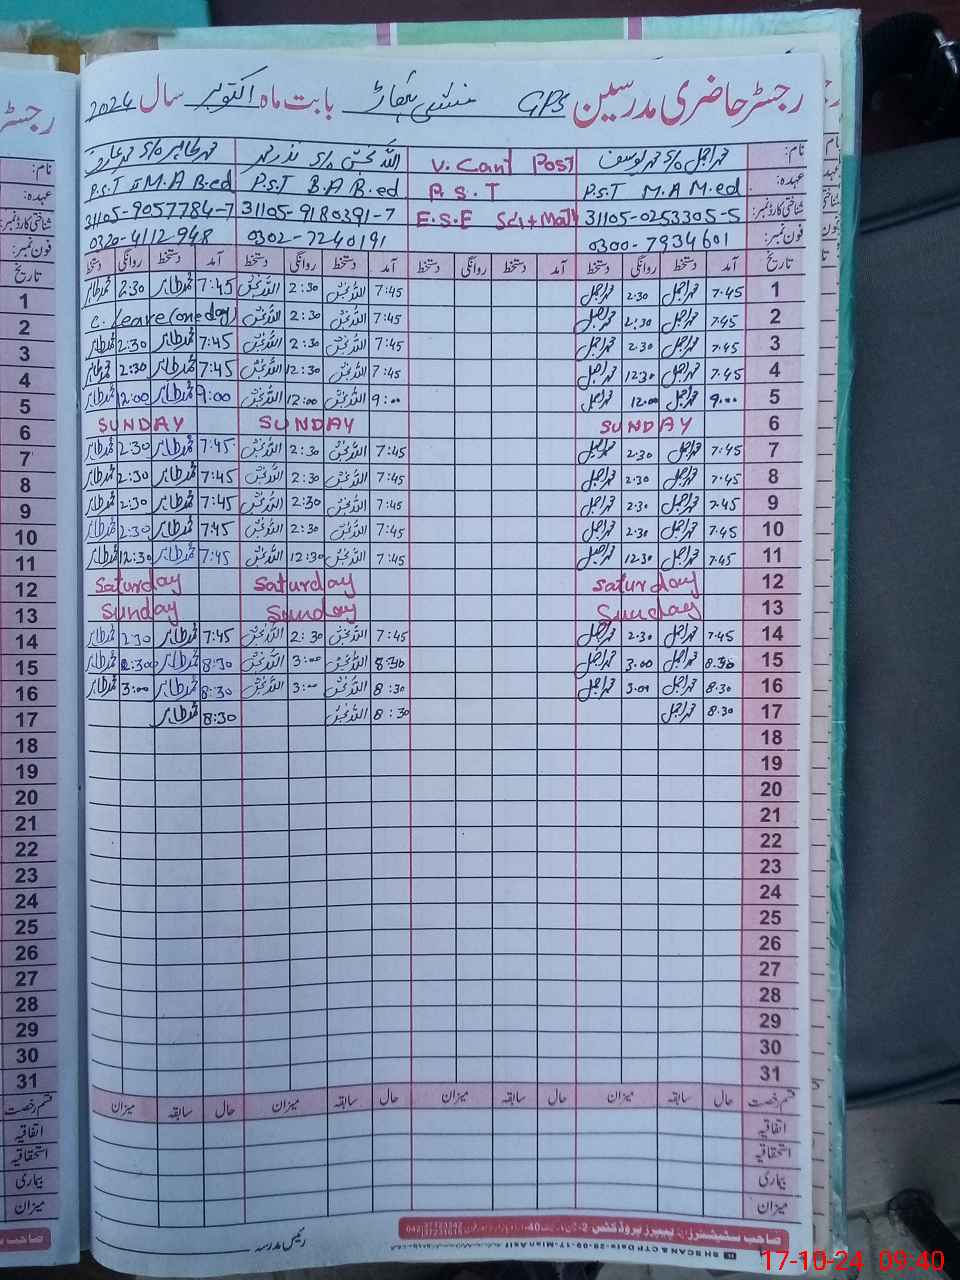 رجسٹر حاضری مدرسین GPS منشی بابت ماہ اکتوبر سال 2024
نام: محمد اجمل s/o محمد یوسف V.Cant Post اللہ بخش s/o نذر محمد محمد طاہر s/o
عہدہ: P.S.T M.A M.ed P.S.T P.S.T B.A B.ed P.S.T M.A B.ed
شناختی کارڈ نمبر: 31105-0253305-5 E.S.E Sci+Math 31105-9180391-7 31105-9057784-7
فون نمبر: 0300-7934601 0302-7240191 0320-4112948
تاریخ آمد دستخط روانگی دستخط آمد دستخط روانگی دستخط آمد دستخط روانگی دستخط آمد دستخط روانگی دستخط
1 7:45 محمد اجمل 2:30 محمد اجمل 7:45 اللہ بخش 2:30 اللہ بخش 7:45 محمد طاہر 2:30 محمد طاہر
2 7:45 محمد اجمل 2:30 محمد اجمل 7:45 اللہ بخش 2:30 اللہ بخش C. Leave (one day)
3 7:45 محمد اجمل 2:30 محمد اجمل 7:45 اللہ بخش 2:30 اللہ بخش 7:45 محمد طاہر 2:30 محمد طاہر
4 7:45 محمد اجمل 12:30 محمد اجمل 7:45 اللہ بخش 12:30 اللہ بخش 7:45 محمد طاہر 12:30 محمد طاہر
5 9:00 محمد اجمل 12:00 محمد اجمل 9:00 اللہ بخش 12:00 اللہ بخش 9:00 محمد طاہر 12:00 محمد طاہر
6 SUNDAY SUNDAY SUNDAY
7 7:45 محمد اجمل 2:30 محمد اجمل 7:45 اللہ بخش 2:30 اللہ بخش 7:45 محمد طاہر 2:30 محمد طاہر
8 7:45 محمد اجمل 2:30 محمد اجمل 7:45 اللہ بخش 2:30 اللہ بخش 7:45 محمد طاہر 2:30 محمد طاہر
9 7:45 محمد اجمل 2:30 محمد اجمل 7:45 اللہ بخش 2:30 اللہ بخش 7:45 محمد طاہر 2:30 محمد طاہر
10 7:45 محمد اجمل 2:30 محمد اجمل 7:45 اللہ بخش 2:30 اللہ بخش 7:45 محمد طاہر 2:30 محمد طاہر
11 7:45 محمد اجمل 12:30 محمد اجمل 7:45 اللہ بخش 12:30 اللہ بخش 7:45 محمد طاہر 12:30 محمد طاہر
12 Saturday Saturday Saturday
13 Sunday Sunday Sunday
14 7:45 محمد اجمل 2:30 محمد اجمل 7:45 اللہ بخش 2:30 اللہ بخش 7:45 محمد طاہر 2:30 محمد طاہر
15 8:30 محمد اجمل 3:00 محمد اجمل 8:30 اللہ بخش 3:00 اللہ بخش 8:30 محمد طاہر محمد طاہر
16 8:30 محمد اجمل 3:00 محمد اجمل 8:30 اللہ بخش 3:00 اللہ بخش 8:30 محمد طاہر 3:00 محمد طاہر
17 8:30 محمد اجمل 8:30 اللہ بخش 8:30 محمد طاہر
18
19
20
21
22
23
24
25
26
27
28
29
30
31
قسم رخصت حال سابقہ میزان حال سابقہ میزان حال سابقہ میزان حال سابقہ میزان
اتفاقیہ
استحقاقیہ
بیماری
میزان
صاحب سٹیشنرز اینڈ پیپرز پروڈکٹس
رئیس مدرسہ
17-10-24 09:40